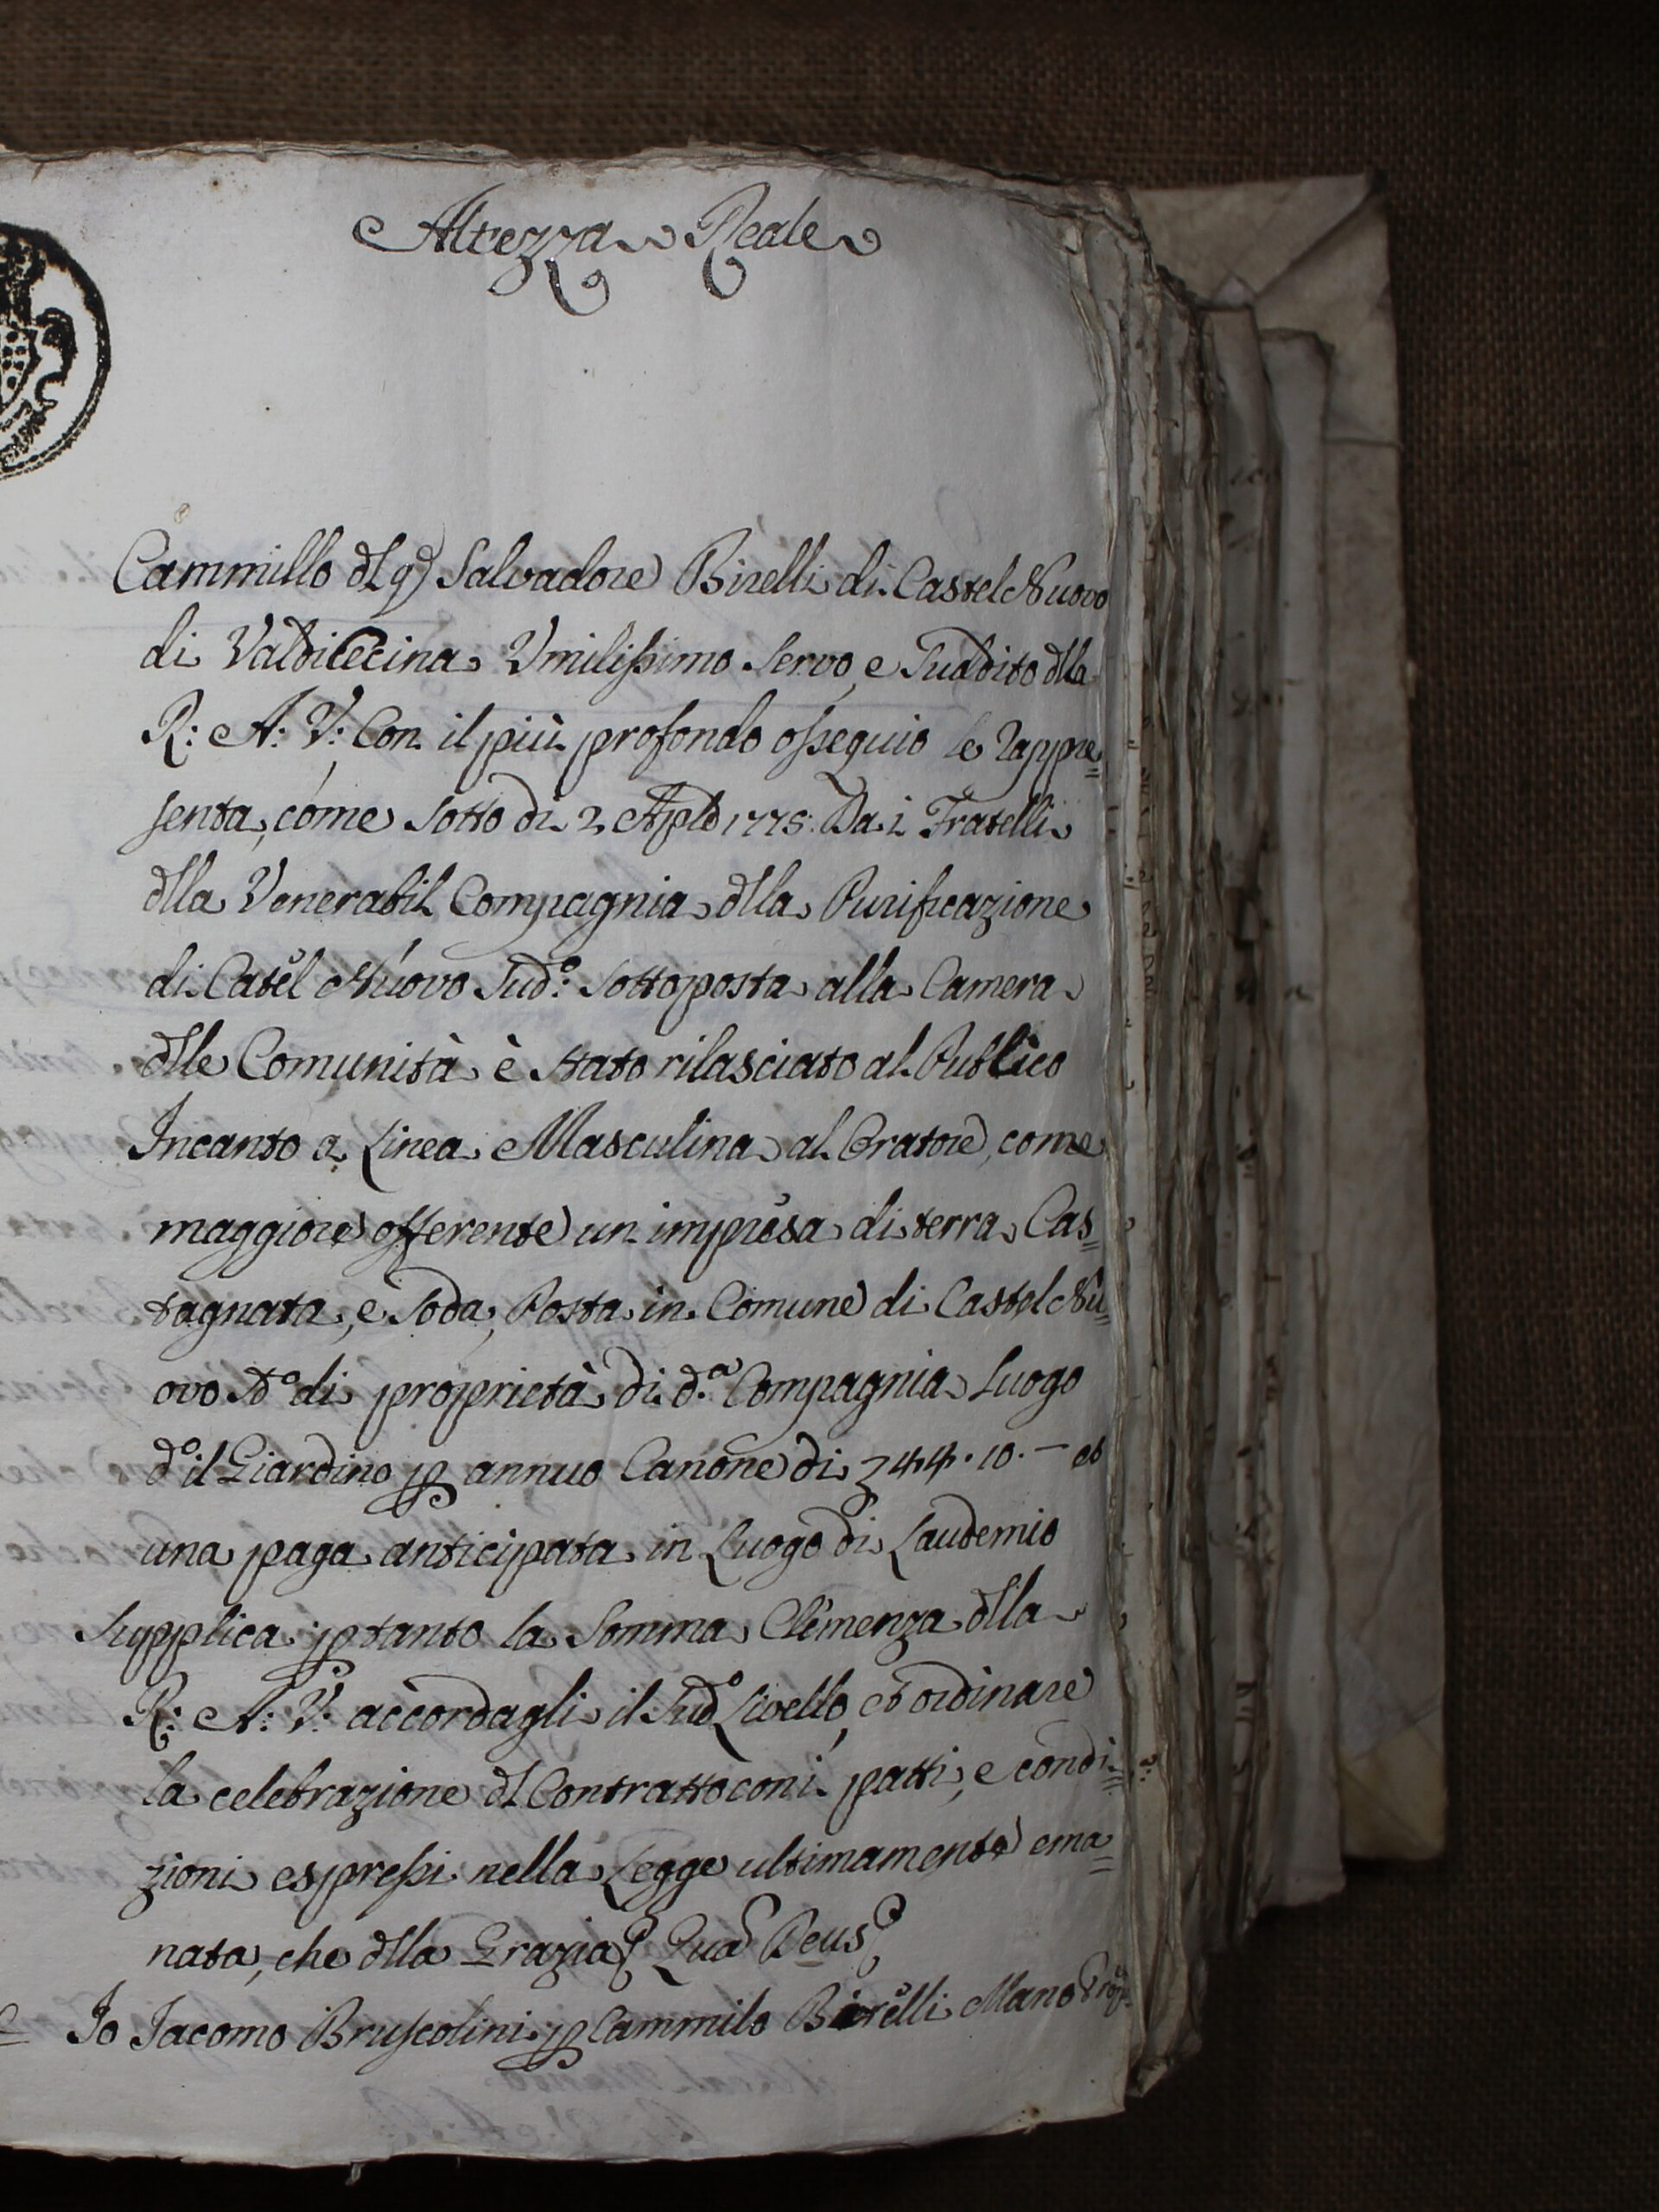 Altezza Reale
Cammillo dl q Salvadore Birelli di Castel Nuovo
di Valdicecina Umilissimo Servo, e Suddito dlla
R: A: V: Con il più profondo ossequio le Rappre=
senta, come sotto di 2 Aple 1775. Da i Fratelli
dlla Venerabil Compagnia dlla Purificazione
di Castel Nuovo Sudo: Sottoposta alla Camera
dlle Comunità è stato rilasciato al Publico
Incanto a Linea Masculina al Oratore, come
maggiore offerente un impresa di terra Cas=
tagnata, e Soda, Posta in Comune di Castel Nu=
ovo do di proprietà di d.a Compagnia Luogo
do il Giardino p annuo Canone di 44.10.— et
una paga anticipata in Luogo di Laudemio
Supplica ptanto la Somma Clemenza dlla
R: A: V: accordagli il Sudo Livello, et ordinare
la celebrazione dl Contratto con i patti, e condi=
zioni espressi nella Legge ultimamente ema=
nata, che dlla Grazia Qua Deus
Io Jacomo Bruscolini p Cammilo Birelli Mano Propa